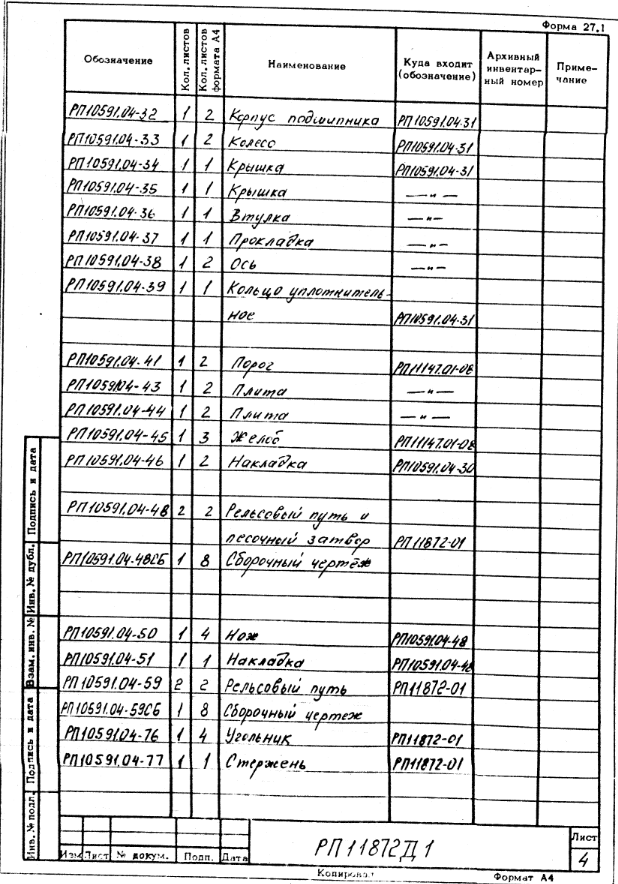 Форма 27.1
Обозначение Кол. листов Кол. листов формата А4 Наименование Куда входит (обозначение) Архивный инвентар-ный номер Приме-чание
РП10591.04-32 1 2 Корпус подшипника РП10591.04-31
РП10591.04-33 1 2 Колесо РП10591.04-31
РП10591.04-34 1 1 Крышка РП10591.04-31
РП10591.04-35 1 1 Крышка —"—
РП10591.04-36 1 1 Втулка —"—
РП10591.04-37 1 1 Прокладка —"—
РП10591.04-38 1 2 Ось —"—
РП10591.04-39 1 1 Кольцо уплотнитель-
ное РП10591.04-31
РП10591.04-41 1 2 Порог РП11147.01-08
РП10591.04-43 1 2 Плита —"—
РП10591.04-44 1 2 Плита —"—
РП10591.04-45 1 3 Желоб РП11147.01-08
РП10591.04-46 1 2 Накладка РП10591.04-30
РП10591.04-48 2 2 Рельсовый путь и
песочный затвор РП.11872-01
РП10591.04-48СБ 1 8 Сборочный чертёж
РП10591.04-50 1 4 Нож РП10591.04-48
РП10591.04-51 1 1 Накладка РП10591.04-48
РП10591.04-59 2 2 Рельсовый путь РП11872-01
РП10591.04-59СБ 1 8 Сборочный чертеж
РП10591.04-76 1 4 Угольник РП11872-01
РП10591.04-77 1 1 Стержень РП11872-01
Инв. № подл. Подпись и дата Взам. инв. № Инв. № дубл. Подпись и дата
Изм Лист № докум. Подп. Дата
РП11872Д1
Лист
4
Копировал Формат А4